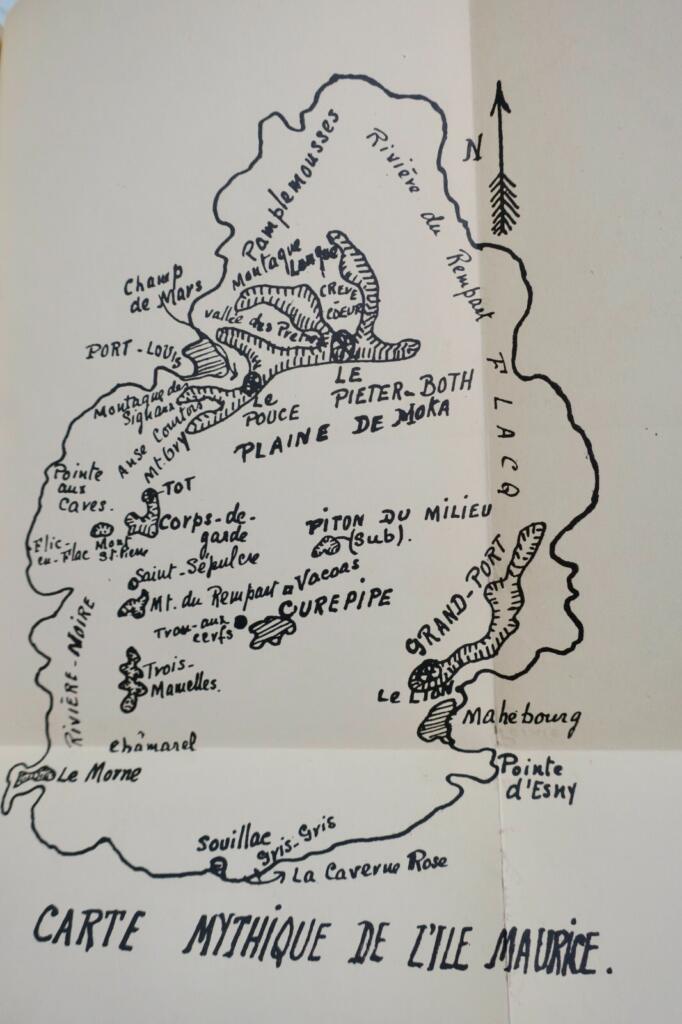 Pamplemousses
Rivière du Rempart
N
Montagne Longue
CRÈVE-
COEUR
Champ
de Mars
Vallée des Prêtres
PORT-LOUIS
LE
PIETER-BOTH
Le
POUCE
FLACQ
PLAINE DE MOKA
Montagne des
Signaux
Anse Courtois
Mt. Ory
Pointe
aux
Caves.
TOT
Corps-de-
garde
Flic-
en-Flac
Mont
St. Pierre
PITON DU MILIEU
(Sub).
Saint-Sépulcre
Mt. du Rempart
Vacoas
CUREPIPE
Trou-aux-
cerfs
GRAND-PORT
RIVIÈRE-NOIRE
Trois-
Mamelles.
Le LION
Mahébourg
Châmarel
Le Morne
Pointe
d'Esny
Souillac
Gris-Gris
La Caverne Rose
CARTE MYTHIQUE DE L'ILE MAURICE.